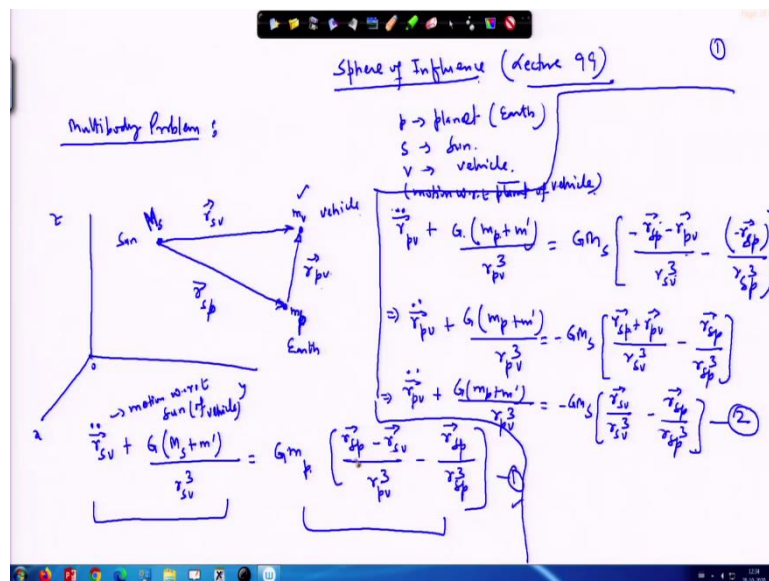 Sphere of Influence (Lecture 99)
①
Multibody Problem :
p → planet (Earth)
s → Sun.
v → vehicle.
(motion w.r.t planet of vehicle)
z
M_s
Sun
\vec{r}_{sv}
✓
m_v vehicle
\vec{r}_{pv}
\vec{r}_{sp}
m_p
Earth
o
y
x
\ddot{\vec{r}}_{pv} + \frac{G.(m_p+m')}{r_{pv}^3} = Gm_s \left[ \frac{-\vec{r}_{sp}-\vec{r}_{pv}}{r_{sv}^3} - \frac{(-\vec{r}_{sp})}{r_{sp}^3} \right]
⇒ \ddot{\vec{r}}_{pv} + \frac{G(m_p+m')}{r_{pv}^3} = -Gm_s \left[ \frac{\vec{r}_{sp}+\vec{r}_{pv}}{r_{sv}^3} - \frac{\vec{r}_{sp}}{r_{sp}^3} \right]
⇒ \ddot{\vec{r}}_{pv} + \frac{G(m_p+m')}{r_{pv}^3} = -Gm_s \left[ \frac{\vec{r}_{sv}}{r_{sv}^3} - \frac{\vec{r}_{sp}}{r_{sp}^3} \right] — ②
→ motion w.r.t
Sun (of vehicle)
\ddot{\vec{r}}_{sv} + \frac{G(M_s+m')}{r_{sv}^3} = Gm_p \left[ \frac{\vec{r}_{sp}-\vec{r}_{sv}}{r_{pv}^3} - \frac{\vec{r}_{sp}}{r_{sp}^3} \right] — ①
✓
12:34